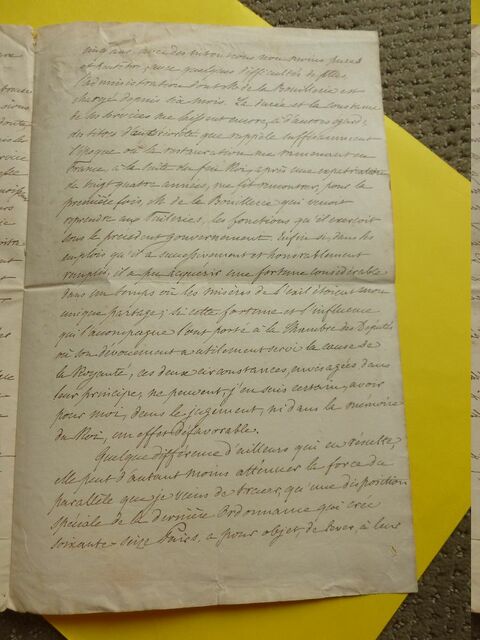 vingt ans, avec des intentions non moins pures
et surtout, avec quelques difficultés de plus,
l'administration dont M. de la Bouillerie est
chargé depuis dix mois. La durée et la constance
de les services me laissent encore, à d'autres égards
des titres d'antériorité que rappèle suffisamment
l'époque où la restauration me ramenant en
France, à la suite du feu Roi, après une expatriation
de vingt quatre années, me fit rencontrer, pour la
première fois, M. de la Bouillerie qui venoit
reprendre aux Tuileries, les fonctions qu'il exerçoit
sous le précédent gouvernement. Enfin si, dans les
emplois qu'il a successivement et honorablement
remplis, il a pu acquérir une fortune considérable
dans un temps où les misères de l'exil étoient mon
unique partage; si cette fortune et l'influence
qui l'accompagne l'ont porté à la Chambre des Députés
où son dévouement a utilement servi la cause de
la Royauté, ces deux circonstances, envisagées dans
leur principe, ne peuvent, j'en suis certain, avoir
pour moi, dans le jugement, ni dans la mémoire
du Roi, un effet défavorable.
Quelque différence d'ailleurs qui en résulte,
elle peut d'autant moins atténuer la force du
parallèle que je viens de tracer, qu'une disposition
spéciale de la dernière Ordonnance qui crée
soixante-seize Pairs, a pour objet, de lever, à leur